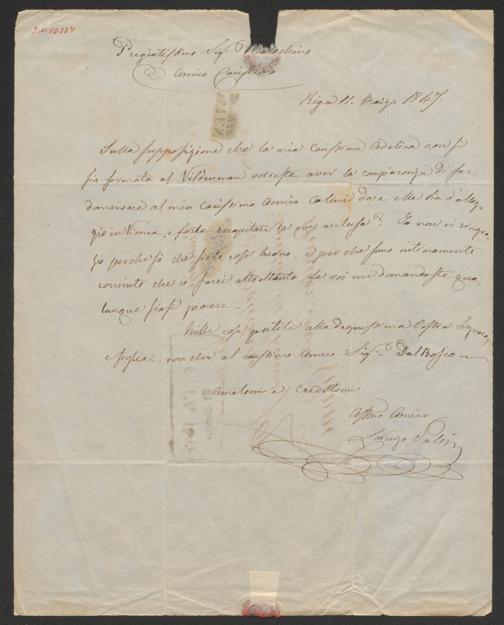 Pregiatissimo Sigr
e Amico Carissimo
Riga 11. Marzo 1847.
Sulla supposizione che la mia carissima Adelina non si
sia fermata al voleste aver la compiacenza di far
domandare al mio carissimo Amico Catini dove ella ha d'allog
gio in Vienna, e farle recapitare la qui acclusa? Io non vi ringra
zio perche so che siete così buono, e perche sono intimamente
convinto che io farei altrettanto se voi mi domandaste qua
lunque siasi piacere.
Mille cose gentili alla degnissima Vostra Signora,
figlia, non che al carissimo Amico Sigr Dal Bosco
Amatemi e Credetemi
Affmo Amico
Lorenzo Salvi
WIEN